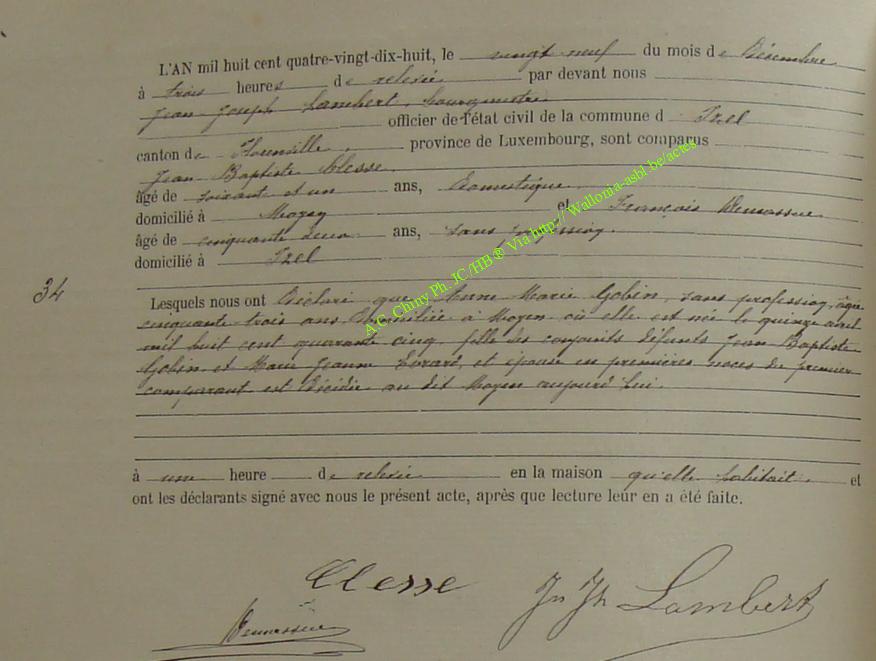 L'AN mil huit cent quatre-vingt-dix-huit, le vingt neuf du mois de Décembre
à trois heures de relevée par devant nous
Jean Joseph Lambert, bourgmestre
officier de l'état civil de la commune d Izel
canton de Florenville, province de Luxembourg, sont comparus
Jean Baptiste Clesse
âgé de soixant et un ans, Domestique
domicilié à Moyen et François
âgé de cinquante deux ans, sans profession
domicilié à Izel
34
Lesquels nous ont Déclaré que Anne Marie Gobin, sans profession, âgée
cinquante-trois ans Domiciliée à Moyen où elle est née le quinze avril
mil huit cent quarante cinq, fille des conjoints défunts Jean Baptiste
Gobin et Marie Jeanne Evrard, et épouse en premières noces du premier
comparant est Décédée au dit Moyen aujourd'hui
à une heure de relevée en la maison qu'elle habitait. et
ont les déclarants signé avec nous le présent acte, après que lecture leur en a été faite.
Clesse
Jn Jh Lambert
A.C. Chiny Ph. JC /HB ® Via http://Wallonia-asbl.be/actes